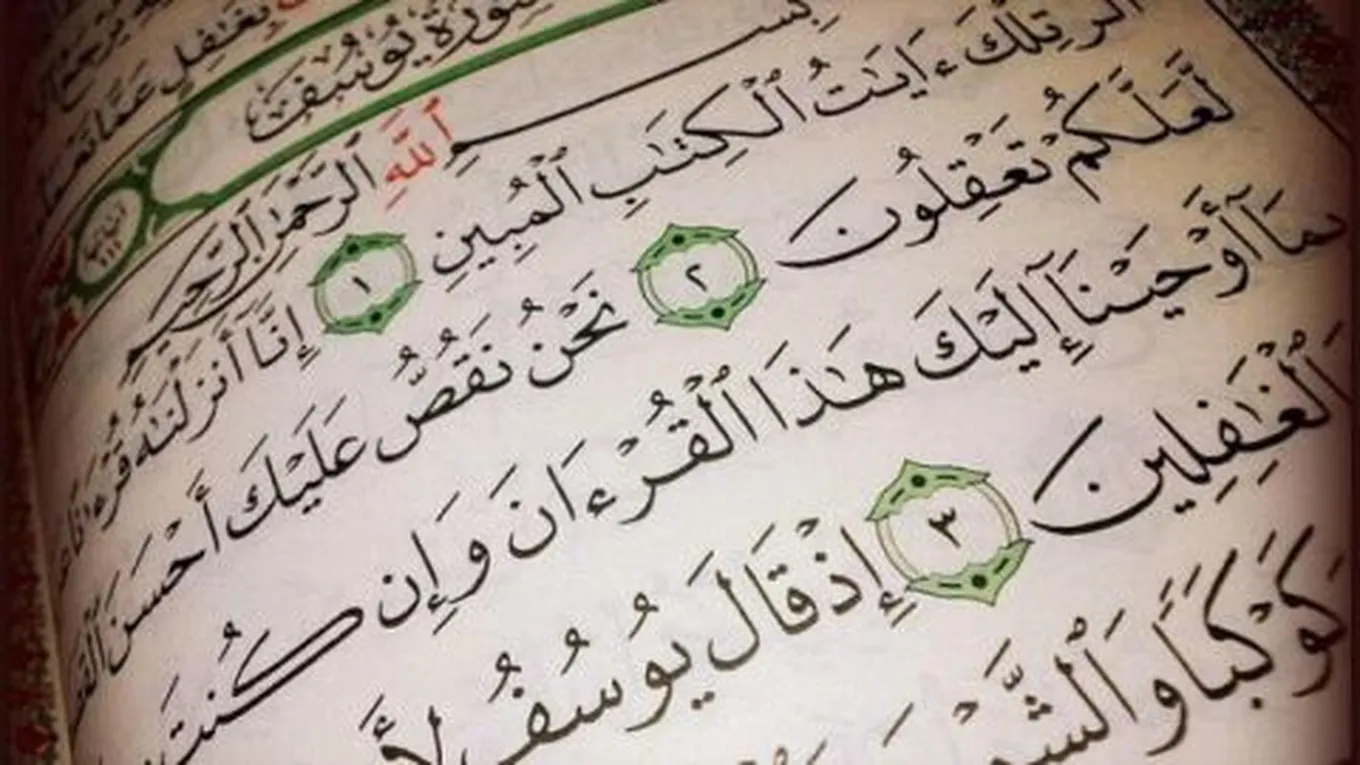 بِغَٰفِلٍ عَمَّا تَعْمَلُونَ
سُورَةُ يُوسُفَ
بِسْمِ ٱللَّهِ ٱلرَّحْمَٰنِ ٱلرَّحِيمِ
الٓر تِلْكَ ءَايَٰتُ ٱلْكِتَٰبِ ٱلْمُبِينِ ١ إِنَّآ أَنزَلْنَٰهُ قُرْءَٰنًا
لَّعَلَّكُمْ تَعْقِلُونَ ٢ نَحْنُ نَقُصُّ عَلَيْكَ أَحْسَنَ
بِمَآ أَوْحَيْنَآ إِلَيْكَ هَٰذَا ٱلْقُرْءَانَ وَإِن كُنتَ
ٱلْغَٰفِلِينَ ٣ إِذْ قَالَ يُوسُفُ
كَوْكَبًا وَٱلشَّمْسَ